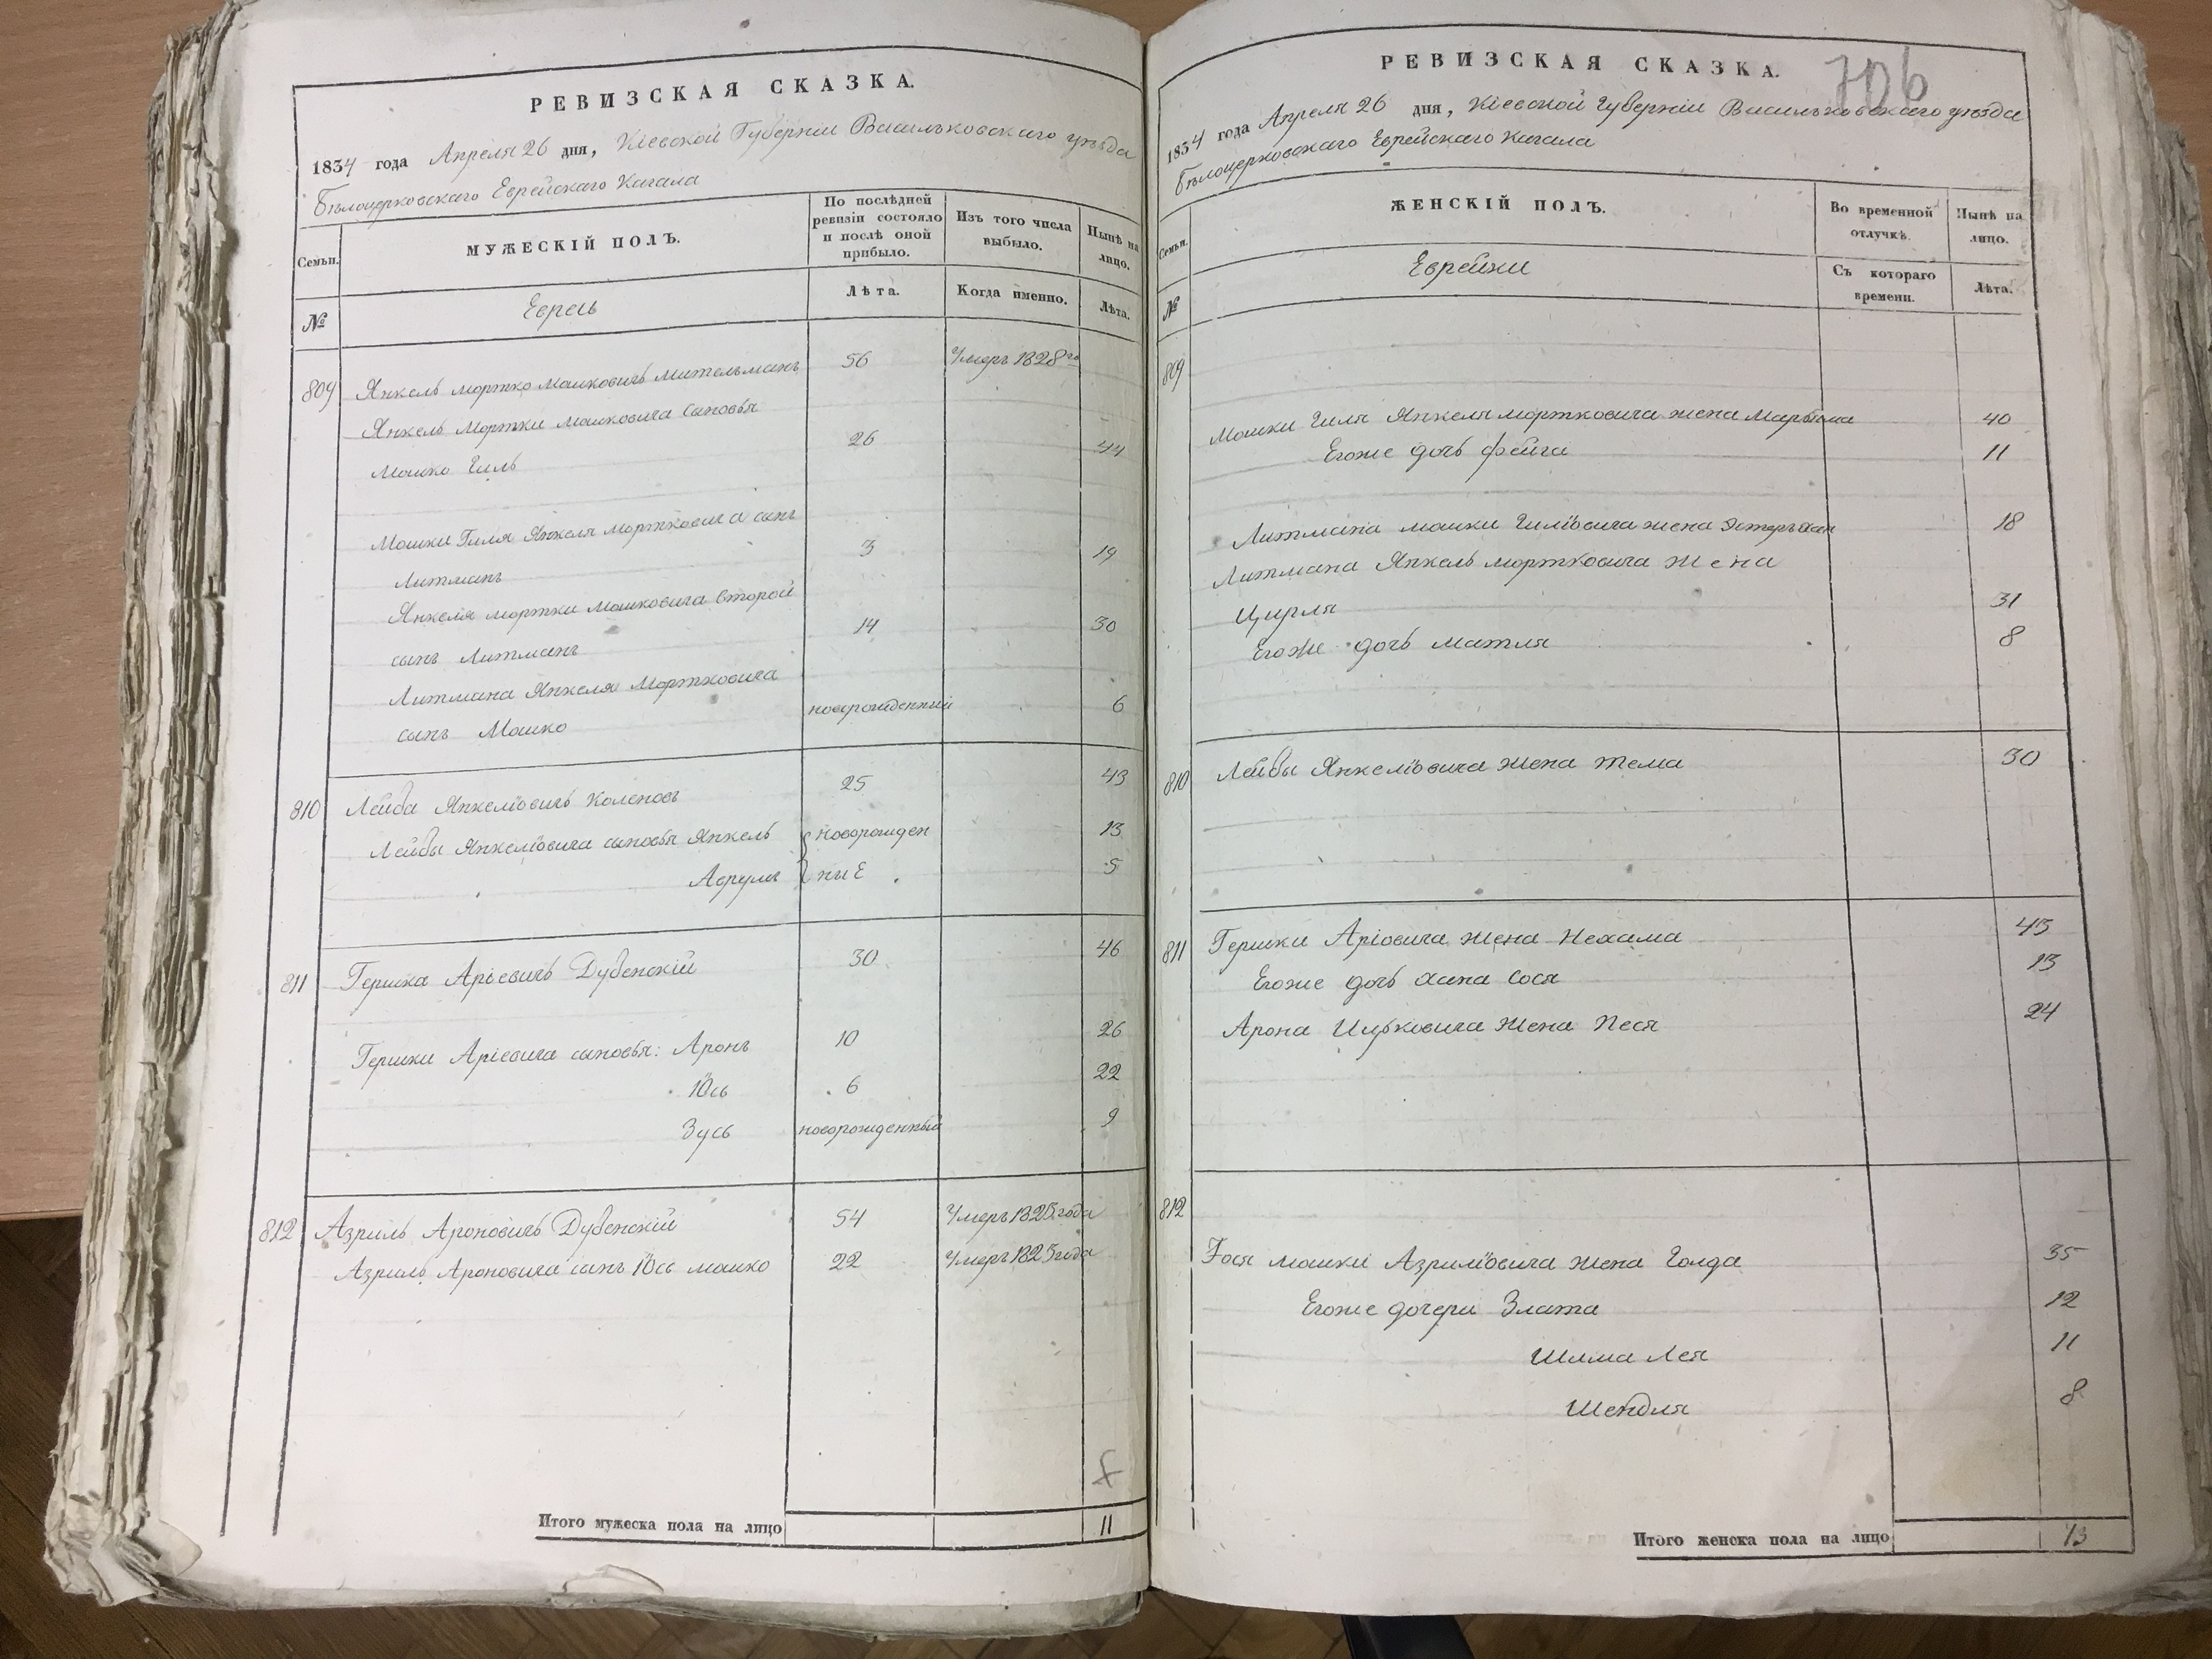 РЕВИЗСКАЯ СКАЗКА.
1834 года Апреля 26 дня, Кіевской Губерніи Васильковскаго уѣзда
Бѣлоцерковскаго Еврейскаго Кагала
Семьи.
МУЖЕСКІЙ ПОЛЪ.
По послѣдней ревизіи состояло и послѣ оной прибыло.
Изъ того числа выбыло.
Нынѣ на лицо.
№
Еврей
Лѣта.
Когда именно.
Лѣта.
809 Янкель мортко мошковичъ мительманъ 56 Умеръ 1828го
Янкель Мортки мошковича сыновья
мошко Гиль 26 44
Мошки Гиля Янкеля мортковича сынъ
Литманъ 3 19
Янкеля мортки мошковича второй
сынъ Литманъ 14 30
Литмана Янкеля Мортковича
сынъ Мошко новорожденный 6
810 Лейба Янкеліовичъ Коленовъ 25 43
Лейбы Янкеліовича сыновья Янкель новорожден 13
Аврумъ ныЕ 5
811 Гершка Аріевичъ Дубенскій 30 46
Гершки Аріевича сыновья: Аронъ 10 26
Юсь 6 22
Зусь новорожденный 9
812 Азриль Ароновичъ Дубенскій 54 Умеръ 1825 года
Азриль Ароновича сынъ Юсь мошко 22 Умеръ 1825 года
Итого мужеска пола на лицо 11
РЕВИЗСКАЯ СКАЗКА.
706
1834 года Апреля 26 дня, Кіевской Губерніи Васильковскаго уѣзда
Бѣлоцерковскаго Еврейскаго Кагала
Семьи.
ЖЕНСКІЙ ПОЛЪ.
Во временной отлучкѣ.
Нынѣ на лицо.
№
Еврейки
Съ котораго времени.
Лѣта.
809
Мошки Гиля Янкеля мортковича жена 40
Егоже дочь фейга 11
Литмана мошки Гиліовича жена Эстеръ хая 18
Литмана Янкель мортковича жена
Цирля 31
Егоже дочь матля 8
810 Лейбы Янкеліовича жена тема 30
811 Гершки Аріовича жена Нехама 43
Егоже дочь хана сося 13
Арона Ицковича жена Песя 24
812
мошки Азриліовича жена Голда 35
Егоже дочери Злата 12
Шима Лея 11
Шендля 8
Итого женска пола на лицо 13